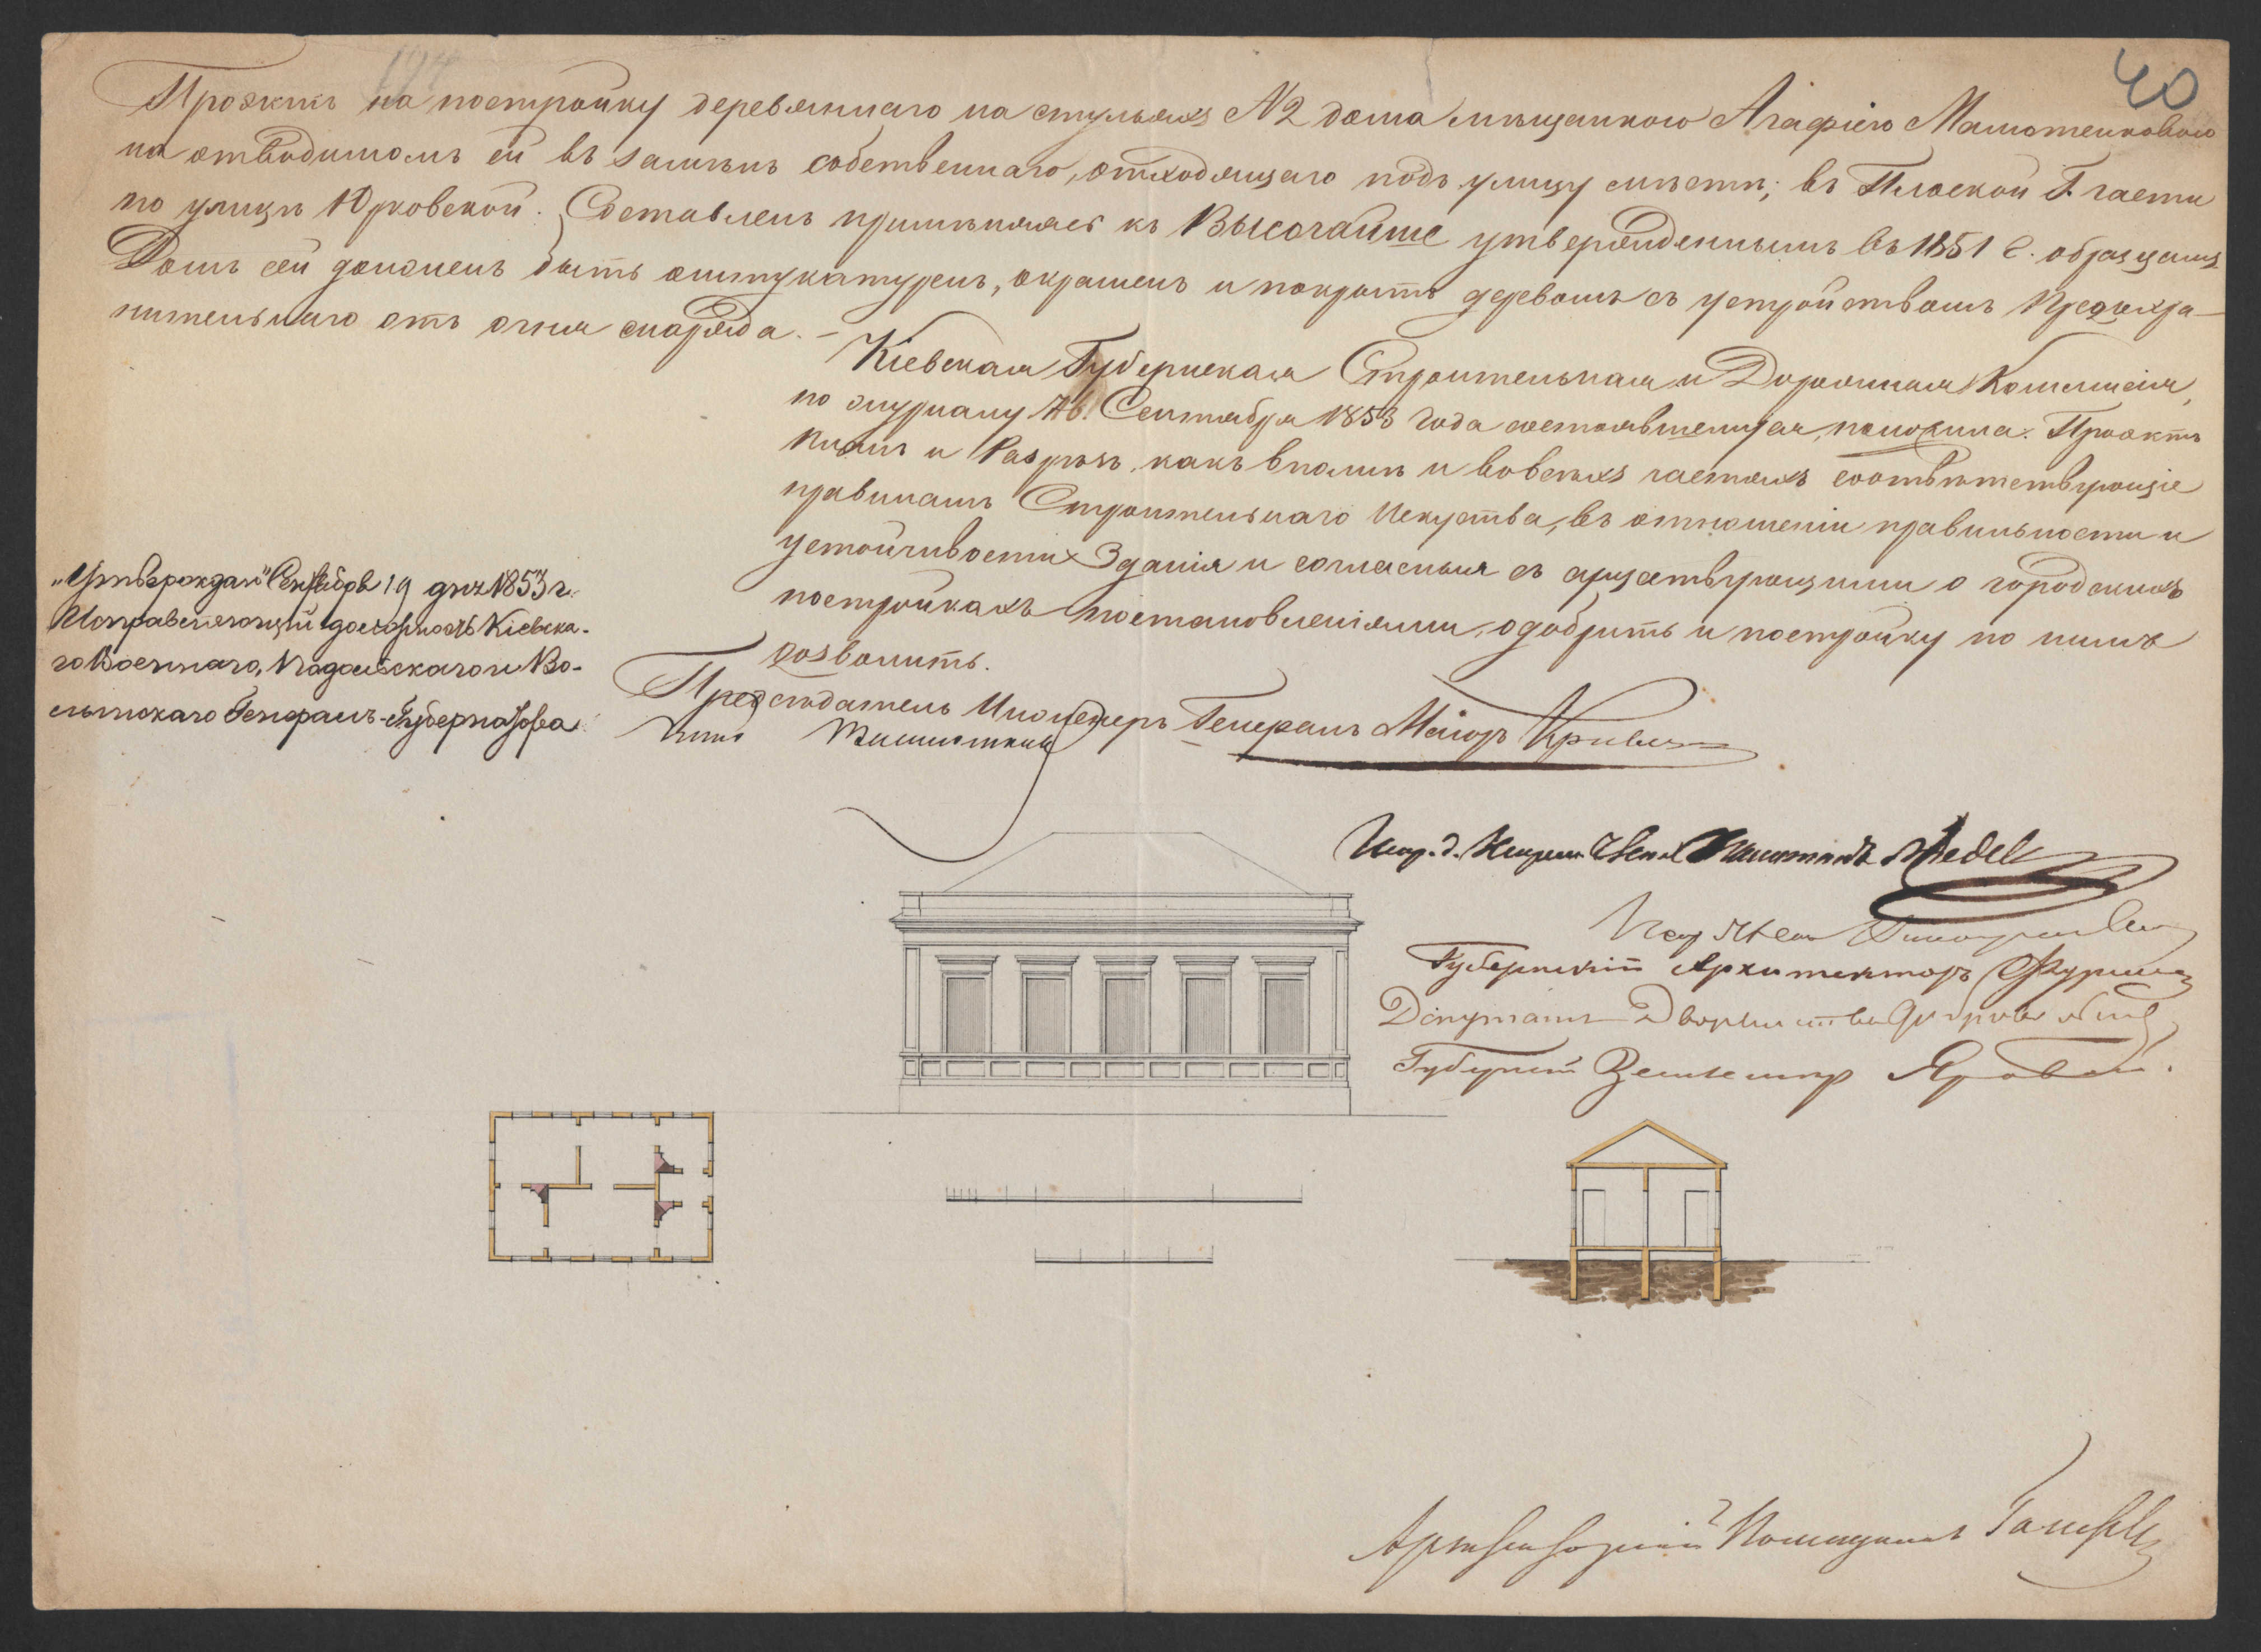 40
Проэктъ на постройку деревяннаго на стульяхъ №2 дома мѣщанкою Агафіею Мамотенковою
на отводимомъ ей въ замѣнъ собственнаго, отходящаго подъ улицу мѣста; въ Плоской Г. части
по улицѣ Юрковской. Составленъ примѣняясь къ Высочайше утвержденнымъ въ 1851 г. образцамъ
Домъ сей долженъ быть оштукатуренъ, окрашенъ и покрытъ деревомъ съ устройствомъ предохра-
нительнаго отъ огня снаряда. –
Кіевская Губернская Строительная и Дорожная Коммисія,
по журналу Сентября 1853 года состоявшемуся, положила: Проэктъ
планъ и Разрѣзъ, какъ вполнѣ и во всѣхъ частяхъ соотвѣтствующіе
правиламъ Строительнаго Искуства, въ отношеніи правильности и
устойчивости Зданія и согласныя съ существующими о городскихъ
постройкахъ постановленіями, одобрить и постройку по нимъ
дозволить.
Предсѣдатель Инженеръ Генералъ Маіоръ
„Утверждаю" Сентября 19 дня 1853 г.
Исправляющій должность Кіевска-
го Военнаго, Подольскаго и Во-
лынскаго Генералъ-Губернатора
Испр. д. Члена Капитанъ
Губернскій Архитекторъ
Депутатъ Дворянства
Губернскій Землемѣръ Яровой.
Архитекторскій Помощникъ